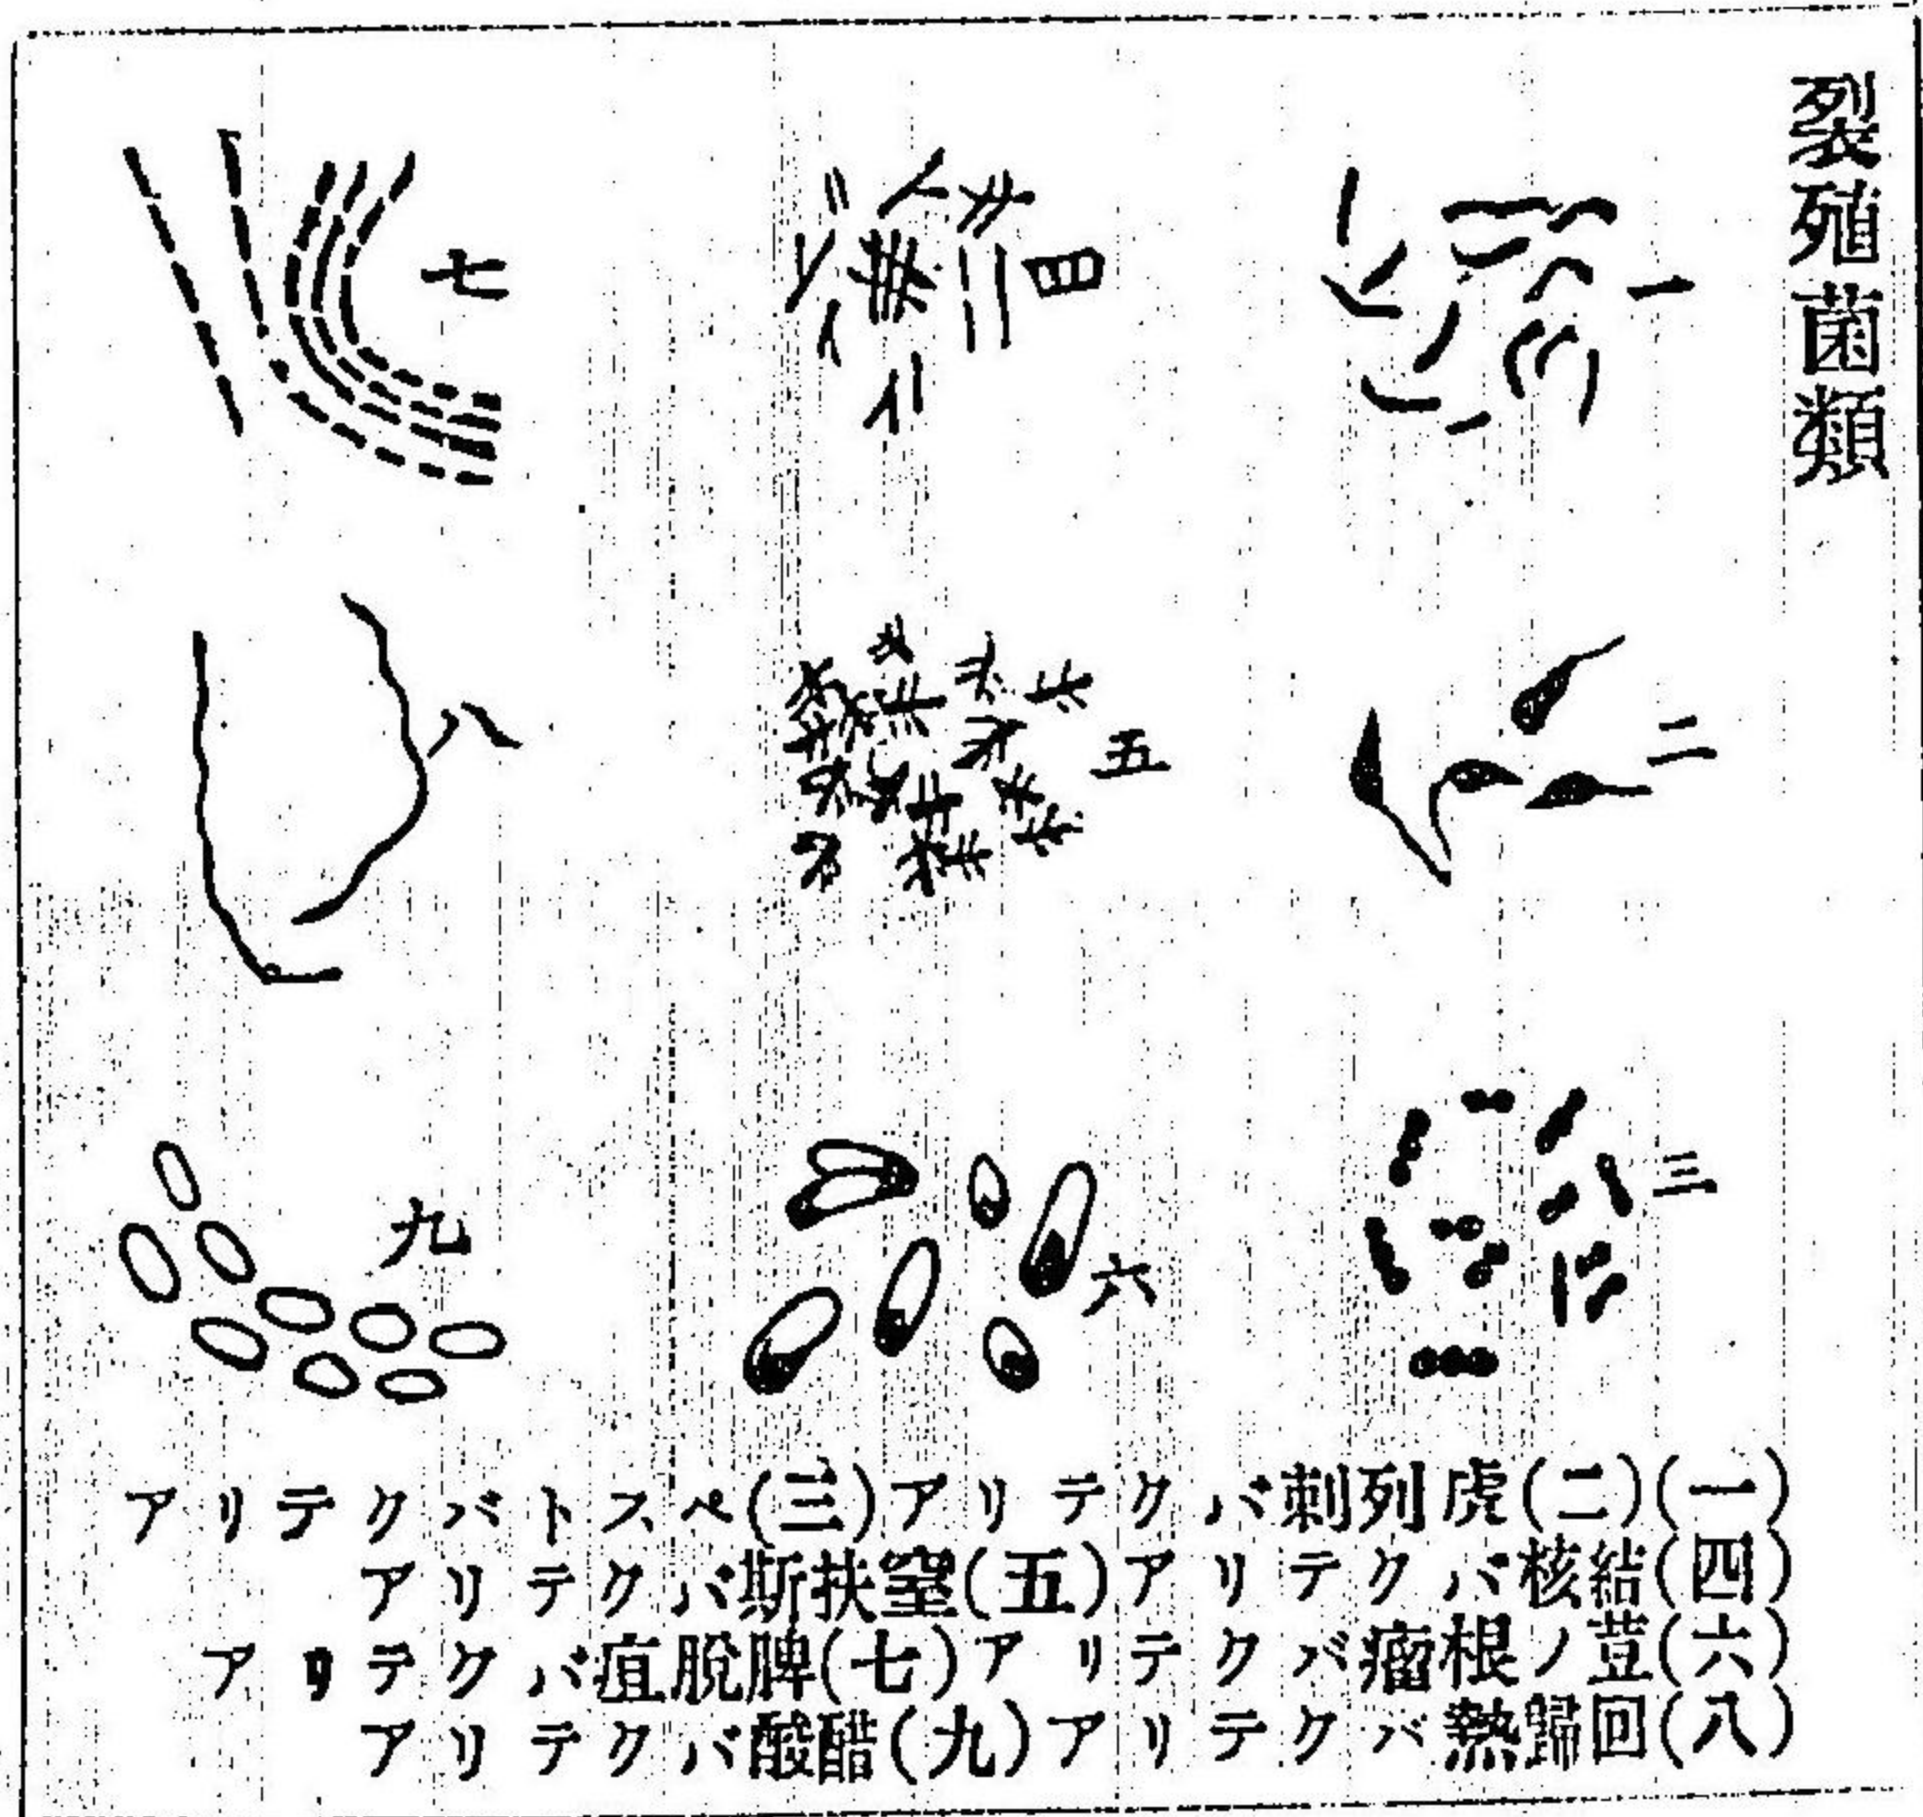 裂殖菌類
一
二
三
四
五
六
七
八
九
(一)(二)虎列刺バクテリア(三)ペストバクテリア
(四)結核バクテリア(五)窒扶斯バクテリア
(六)荳ノ根瘤バクテリア(七)脾脫疽バクテリア
(八)回歸熱バクテリア(九)醋酸バクテリア